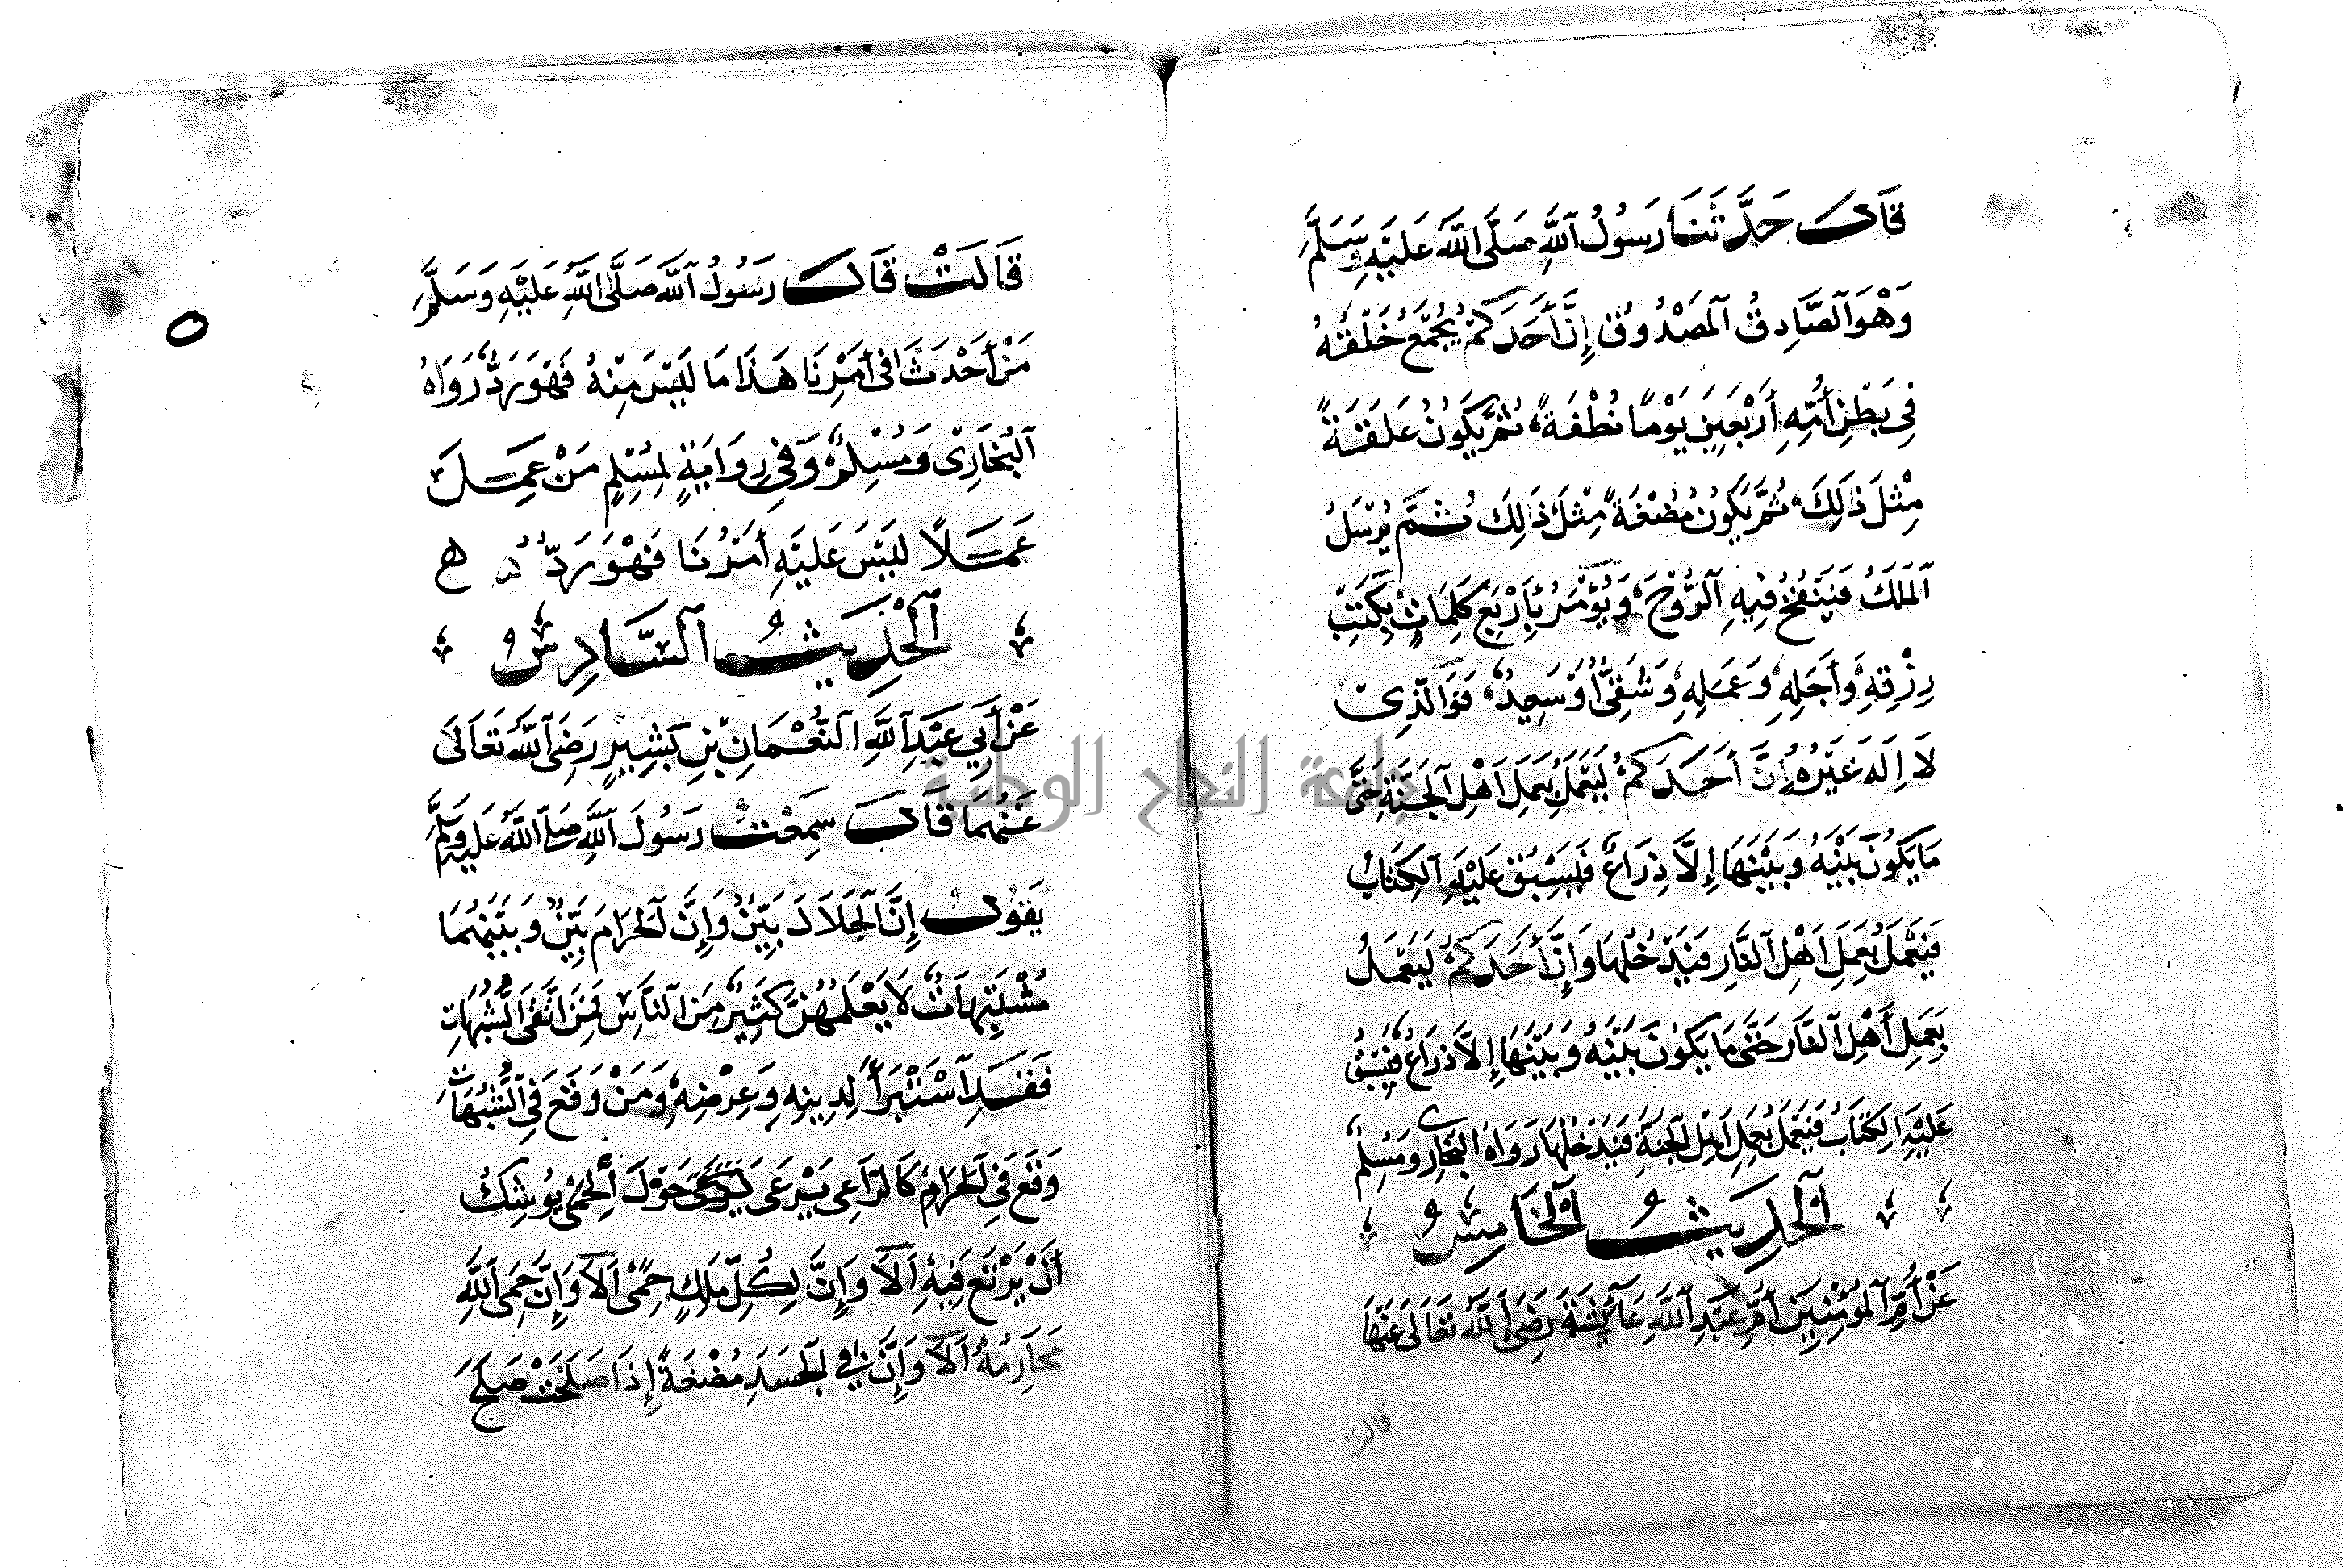 قَالَ حَدَّثَنَا رَسُولُ اللَّهِ صَلَّى اللَّهُ عَلَيْهِ وَسَلَّمَ
وَهْوَ الصَّادِقُ الْمَصْدُوقُ إِنَّ أَحَدَكُمْ يُجْمَعُ خَلْقُهُ
فِي بَطْنِ أُمِّهِ أَرْبَعِينَ يَوْمًا نُطْفَةً ثُمَّ يَكُونُ عَلَقَةً
مِثْلَ ذَلِكَ ثُمَّ يَكُونُ مُضْغَةً مِثْلَ ذَلِكَ ثُمَّ يُرْسَلُ
الْمَلَكُ فَيَنْفُخُ فِيهِ الرُّوحَ وَيُؤْمَرُ بِأَرْبَعِ كَلِمَاتٍ بِكَتْبِ
رِزْقِهِ وَأَجَلِهِ وَعَمَلِهِ وَشَقِيٌّ أَوْ سَعِيدٌ فَوَالَّذِي
لَا إِلَهَ غَيْرُهُ إِنَّ أَحَدَكُمْ لَيَعْمَلُ بِعَمَلِ أَهْلِ الْجَنَّةِ حَتَّى
مَا يَكُونَ بَيْنَهُ وَبَيْنَهَا إِلَّا ذِرَاعٌ فَيَسْبَقُ عَلَيْهِ الْكِتَابُ
فَيَعْمَلُ بِعَمَلِ أَهْلِ النَّارِ فَيَدْخُلُهَا وَإِنَّ أَحَدَكُمْ لَيَعْمَلُ
بِعَمَلِ أَهْلِ النَّارِ حَتَّى مَا يَكُونَ بَيْنَهُ وَبَيْنَهَا إِلَّا ذِرَاعٌ فَيَسْبَقُ
عَلَيْهِ الْكِتَابُ فَيَعْمَلُ بِعَمَلِ أَهْلِ الْجَنَّةِ فَيَدْخُلُهَا رَوَاهُ الْبُخَارِي وَمُسْلِمٌ
الْحَدِيثُ الْخَامِسُ
عَنْ أُمِّ الْمُؤْمِنِينَ أُمِّ عَبْدِ اللَّهِ عَائِشَةَ رَضِيَ اللَّهُ تَعَالَى عَنْهَا
قالت
قَالَتْ قَالَ رَسُولُ اللَّهِ صَلَّى اللَّهُ عَلَيْهِ وَسَلَّمَ
مَنْ أَحْدَثَ فِي أَمْرِنَا هَذَا مَا لَيْسَ مِنْهُ فَهُوَ رَدٌّ رَوَاهُ
الْبُخَارِيُّ وَمُسْلِمٌ وَفِي رِوَايَةٍ لِمُسْلِمٍ مَنْ عَمِلَ
عَمَلًا لَيْسَ عَلَيْهِ أَمْرُنَا فَهْوَ رَدٌّ ه
الْحَدِيثُ السَّادِسُ
عَنْ أَبِي عَبْدِ اللَّهِ النُّعْمَانِ بْنِ بَشِيرٍ رَضِيَ اللَّهُ تَعَالَى
عَنْهُمَا قَالَ سَمِعْتُ رَسُولَ اللَّهِ صَلَّى اللَّهُ عَلَيْهِ وَسَلَّمَ
يَقُولُ إِنَّ الْحَلَالَ بَيِّنٌ وَإِنَّ الْحَرَامَ بَيِّنٌ وَبَيْنَهُمَا
مُشْتَبِهَاتٌ لَا يَعْلَمُهُنَّ كَثِيرٌ مِنَ النَّاسِ فَمَنِ اتَّقَى الشُّبُهَاتِ
فَقَدِ اسْتَبْرَأَ لِدِينِهِ وَعِرْضِهِ وَمَنْ وَقَعَ فِي الشُّبُهَاتِ
وَقَعَ فِي الْحَرَامِ كَالرَّاعِي يَرْعَى حَوْلَ الْحِمَى يُوشِكُ
أَنْ يَرْتَعَ فِيهِ أَلَا وَإِنَّ لِكُلِّ مَلِكٍ حِمًى أَلَا وَإِنَّ حِمَى اللَّهِ
مَحَارِمُهُ أَلَا وَإِنَّ فِي الْجَسَدِ مُضْغَةً إِذَا صَلَحَتْ صَلَحَ
جامعة النجاح الوطنية